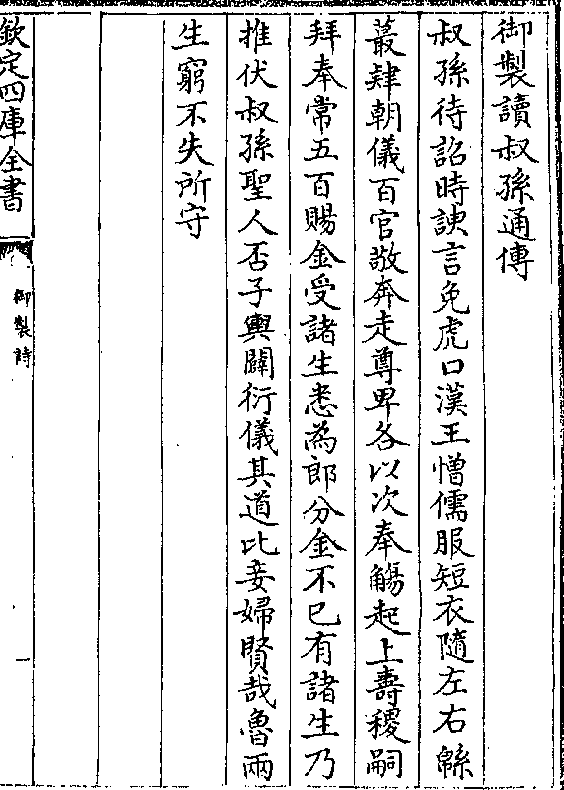 御製讀叔孫通傳
叔孫待詔時諛言免虎口漢王憎儒服短衣隨左右緜
蕞肄朝儀百官敬奔走尊卑各以次奉觴起上壽稷嗣
拜奉常五百賜金受諸生悉為郎分金不已有諸生乃
推伏叔孫聖人否子輿闢衍儀其道比妾婦賢哉魯兩
生窮不失所守
欽定四庫全書
御製詩
一